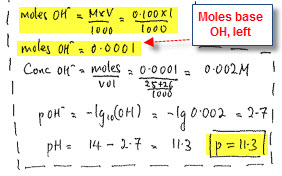 moles OH⁻ = MxV/1000 = 0.100x1/1000
moles OH⁻ = 0.0001
Moles base OH, left
Conc OH⁻ = moles/vol = 0.0001/(25+26/1000) = 0.002M
pOH⁻ = -lg₁₀(OH) = -lg 0.002 = 2.7
pH = 14 - 2.7 = 11.3 p = 11.3